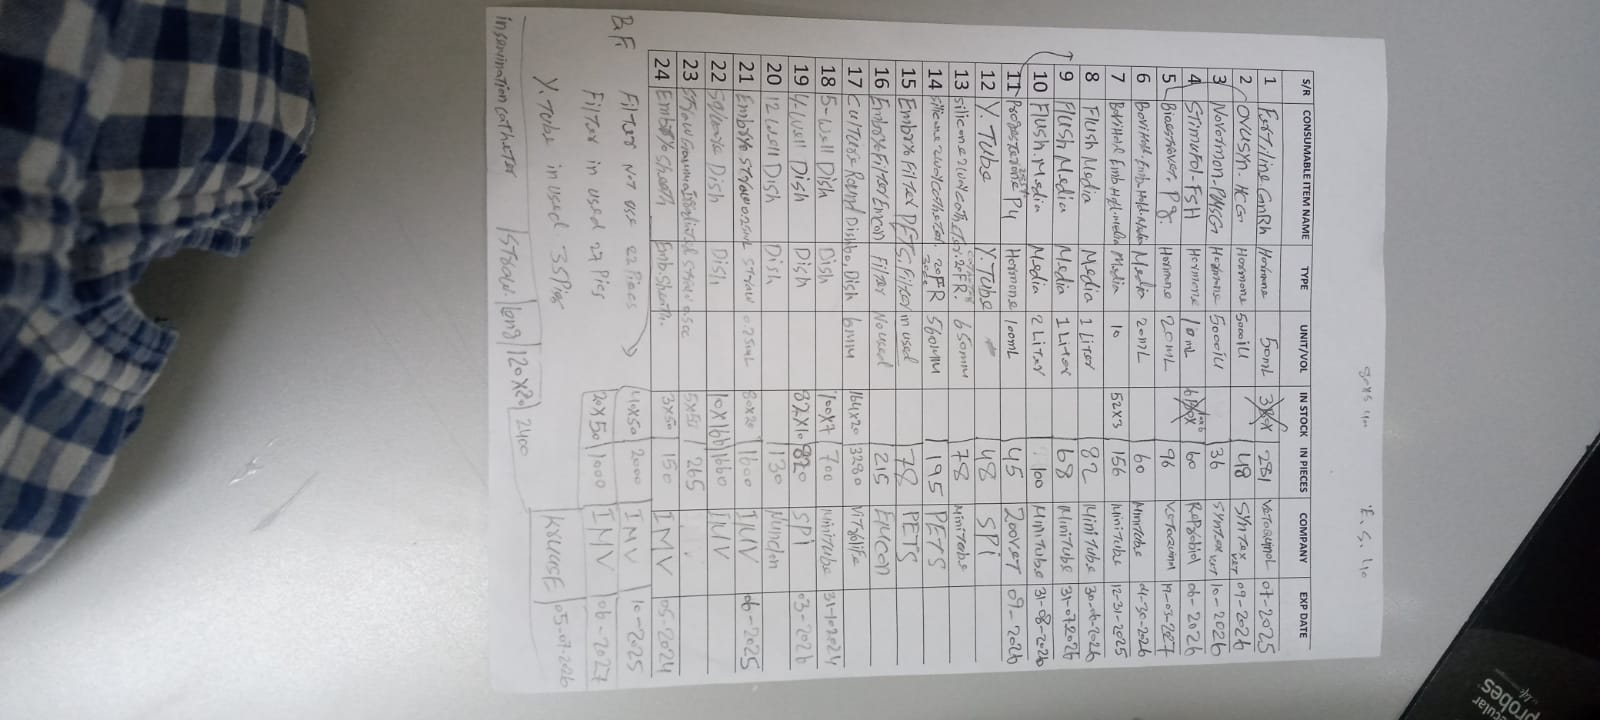 S/R CONSUMABLE ITEM NAME TYPE UNIT/VOL IN STOCK IN PIECES COMPANY EXP DATE
1 Fertiline GnRh Hormone 50mL 3Box 281 Vetoquinol 07-2025
2 OVUSYn. HCG Hormone 5000iU 48 SYnTex VET 09-2026
3 Novormon-PMSG Hormone 5000iU 36 SYnTex VET 10-2026
4 Stimufol-FSH Hormone 10mL 6Box 60 Reprobiol 06-2026
5 Bioestrover. Pg. Hormone 20mL 96 Vetoquinol 19-03-2027
6 BoviHold-Emb.Hold.Media Media 20mL 60 Minitube 04-30-2026
7 BoviHold Emb.Hol-Media Media 10 52X3 156 MiniTube 12-31-2025
8 Flush Media Media 1 LiTer 82 MiniTube 30-06-2026
9 Flush Media Media 1 LiTer 68 MiniTube 31-07-2026
10 Flush.Media Media 2 LiTer 100 MiniTube 31-08-2026
11 Progesterone P4 Hormone 100mL 45 Zoovet 09-2026
12 Y.TUbe Y.TUbe 48 SPi
13 Silicone 2way Catheter.20FR. 650mm 78 MiniTube
14 Silicone 2way Catheter. 20FR 560MM 195 PETS
15 Embryo Filter PETS. Filter in used 78 PETS
16 Embryo Filter Emcon Filter No used 215 EMCon
17 Culture Round Dish60. Dish 6mm 164x20 3280 VitroLiFe
18 5-well Dish Dish 100x7 700 MiniTube 31-1-2024
19 4.well Dish Dish 82X10 820 SPi 03-2026
20 12 well Dish Dish 130 Nundon
21 Embryo STraw 0.25mL STraw 0.25mL 80x20 1600 IMV 06-2025
22 Square Dish Dish 10X166 1660 IMV
23 STraw 5x50 265
24 Embryo Sheath Emb.Sheath. 3x50 150 IMV 05-2024
Filter Not use 22 Pieces 40x50 2000 IMV 10-2025
Filter in used 27 Pies 20X50 1000 IMV 06-2027
Y.Tube in used 35Pies
insemination catheter 1STraw long 120X20 2400 KRUUSE 05-07-2026
probes